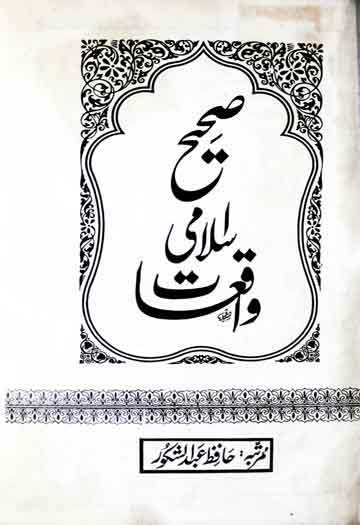 صحیح
اسلامی
واقعات
مرتبہ: حافظ عبدالشکور